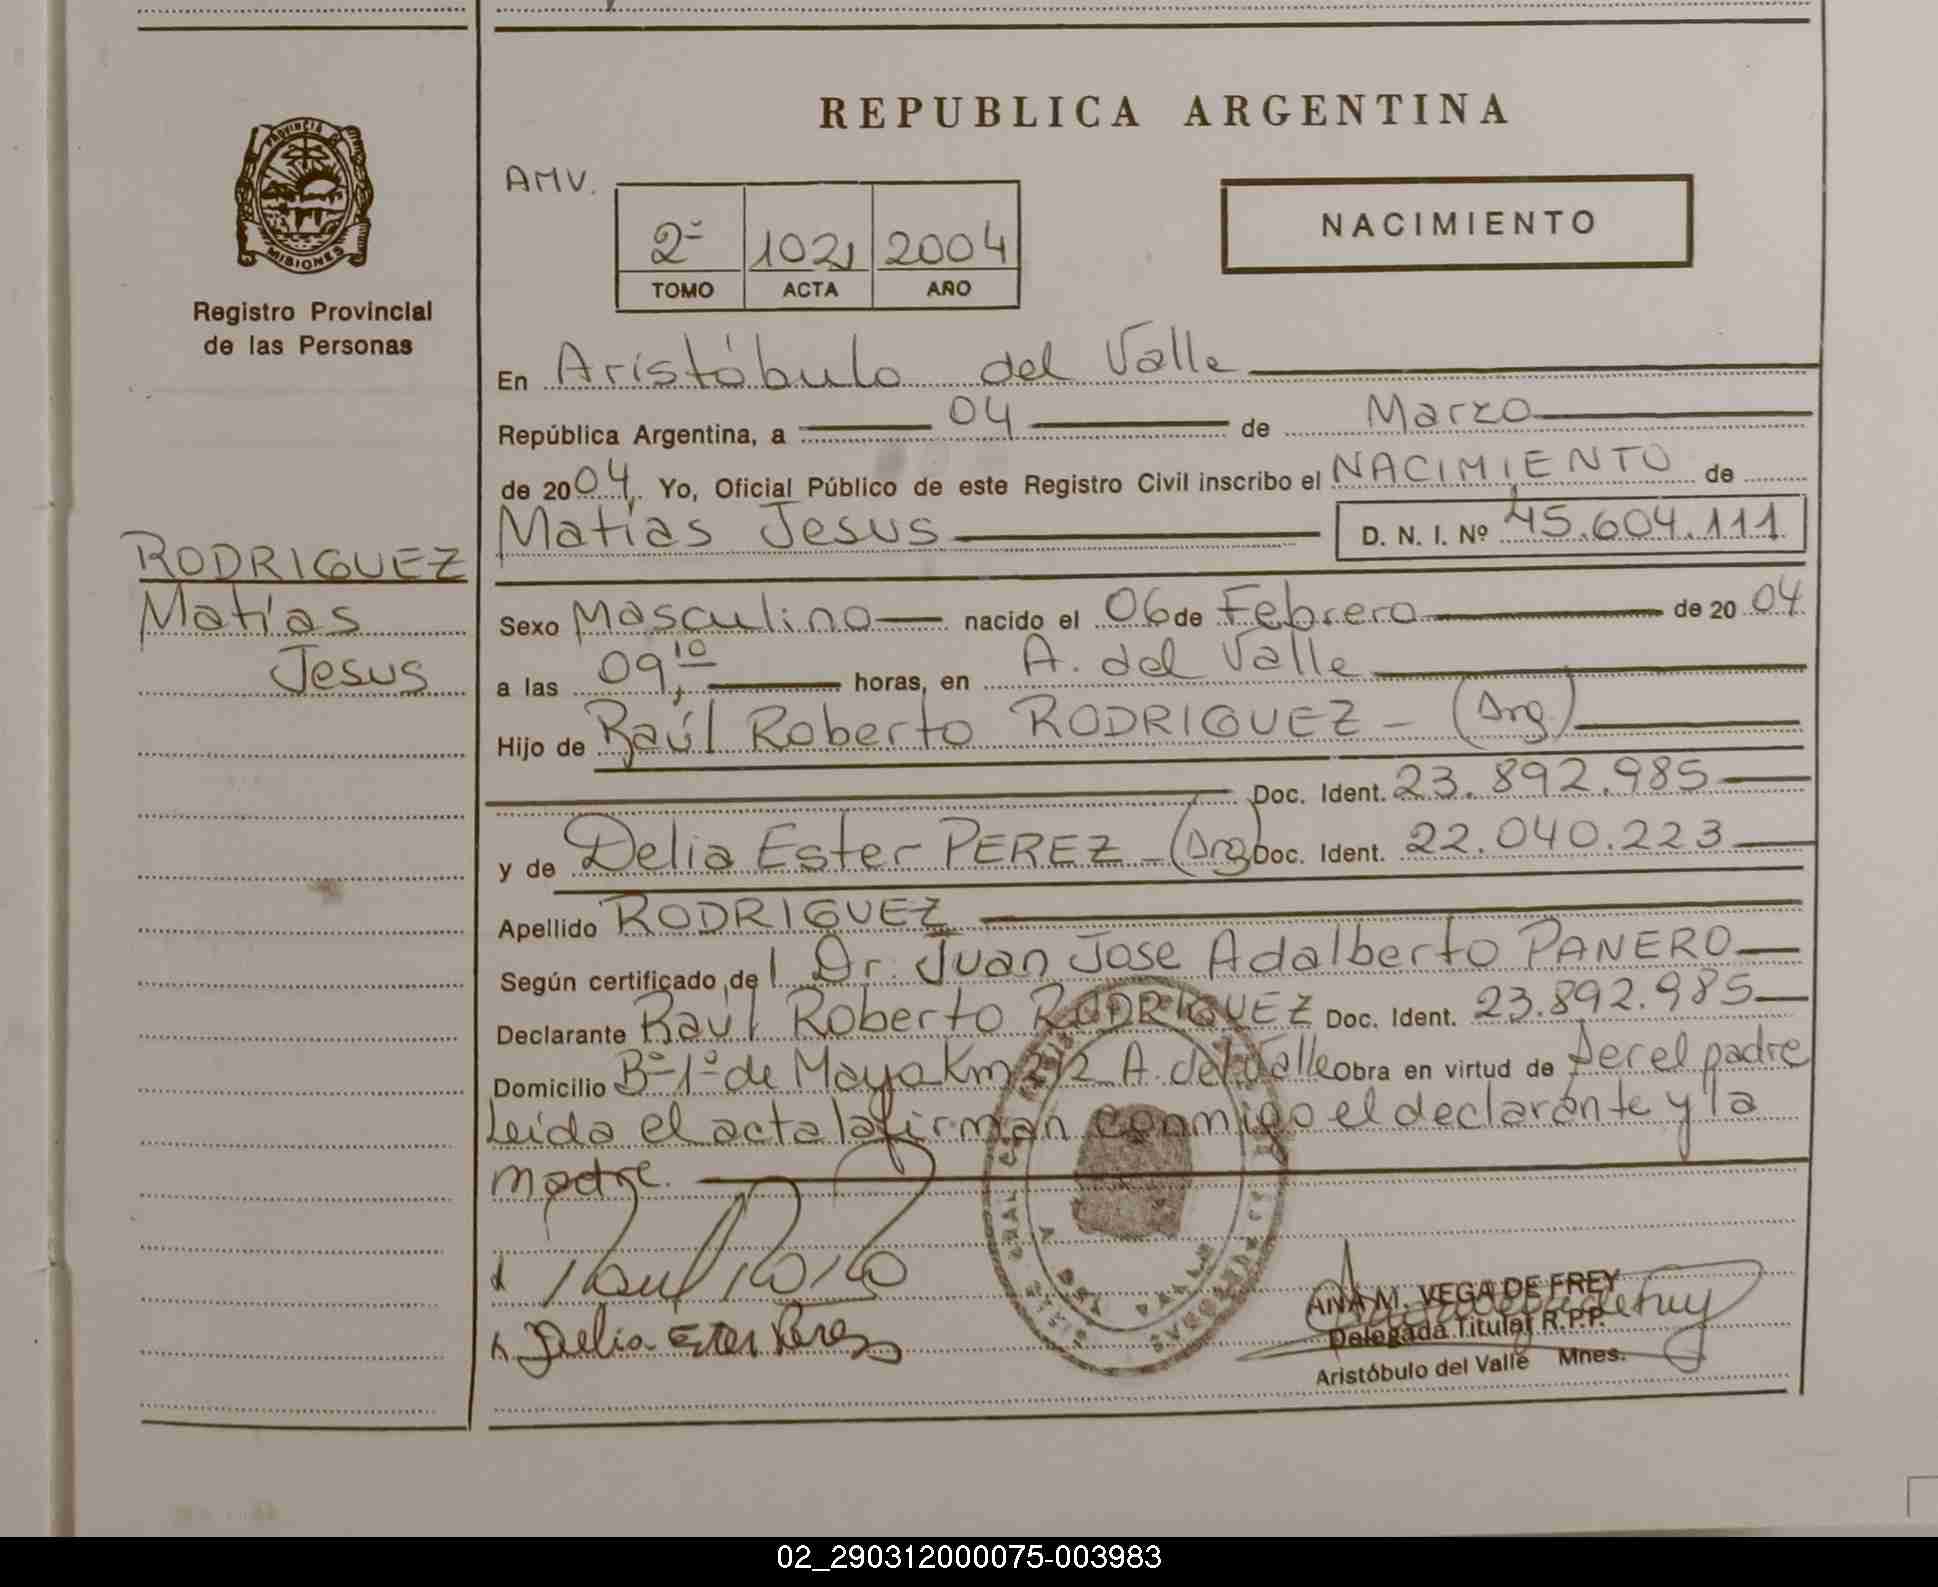 REPUBLICA ARGENTINA
PROVINCIA DE
MISIONES
Registro Provincial
de las Personas
AMV.
2º 1021 2004
TOMO ACTA AÑO
NACIMIENTO
En Aristóbulo del Valle
República Argentina, a 04 de Marzo
de 2004. Yo, Oficial Público de este Registro Civil inscribo el NACIMIENTO de
Matías Jesus D. N. I. Nº 45.604.111
RODRIGUEZ
Matías
Jesus
Sexo Masculino nacido el 06 de Febrero de 2004
a las 09,10 horas, en A. del Valle
Hijo de Raúl Roberto RODRIGUEZ - (Arg.)
Doc. Ident. 23.892.985
y de Delia Ester PEREZ - (Arg) Doc. Ident. 22.040.223
Apellido RODRIGUEZ
Según certificado de l Dr. Juan Jose Adalberto PANERO
Declarante Raúl Roberto RODRIGUEZ Doc. Ident. 23.892.985
Domicilio Bº 1º de Mayo Km 2½ A. del Valle Obra en virtud de ser el padre
Leida el acta la firman conmigo el declarante y la
madre.
Delia Ester Perez
ANA M. VEGA DE FREY
Delegada Titular R.P.P.
Aristóbulo del Valle Mnes.
A. DEL VALLE
02_290312000075-003983